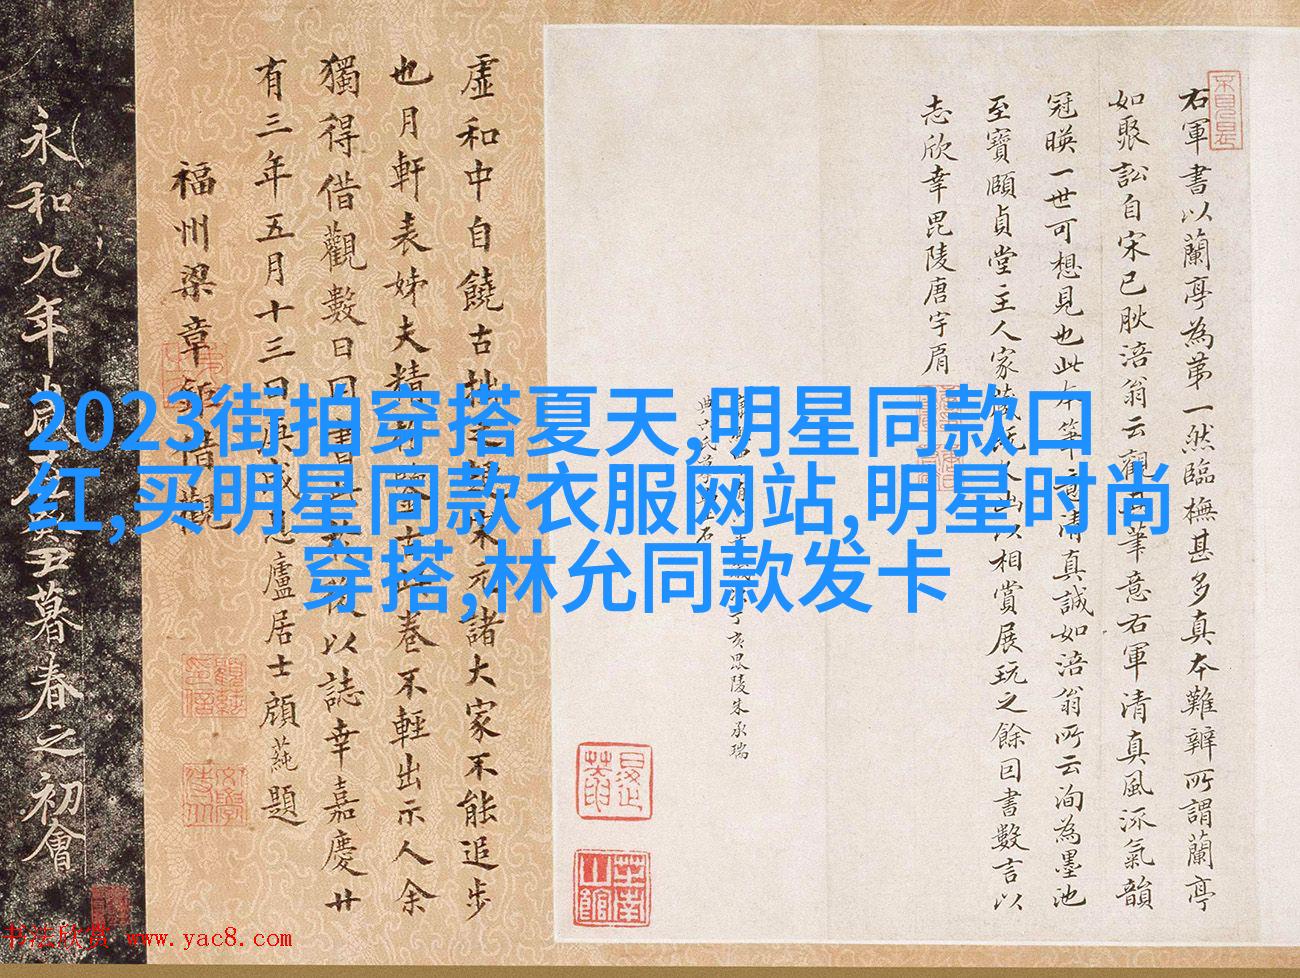 右軍書以蘭亭為第一然臨橅甚多真本難辨所謂蘭亭
如聚訟自宋已耿涪翁云觀其筆意右軍清真風流氣韻
冠暎一世可想見也此本筆意清真誠如涪翁所云洵為墨池
至寶頤貞堂主人家藏
出以相賞展玩之餘因書數言以
志欣幸毘陵唐宇肩
丁亥毘陵朱承瑞
虛和中自饒古拙之趣宋元諸大家不能追步
也月軒表姊夫精於鑒古此卷不輕出示人余
獨得借觀數日因書其後以誌幸嘉慶廿
有三年五月十三日庚戌思廬居士顧蒓題
福州梁章鉅借觀
永和九年歲在癸丑暮春之初會
2023街拍穿搭夏天,明星同款口
红,买明星同款衣服网站,明星时尚
穿搭,林允同款发卡
书法欣赏 www.yac8.com